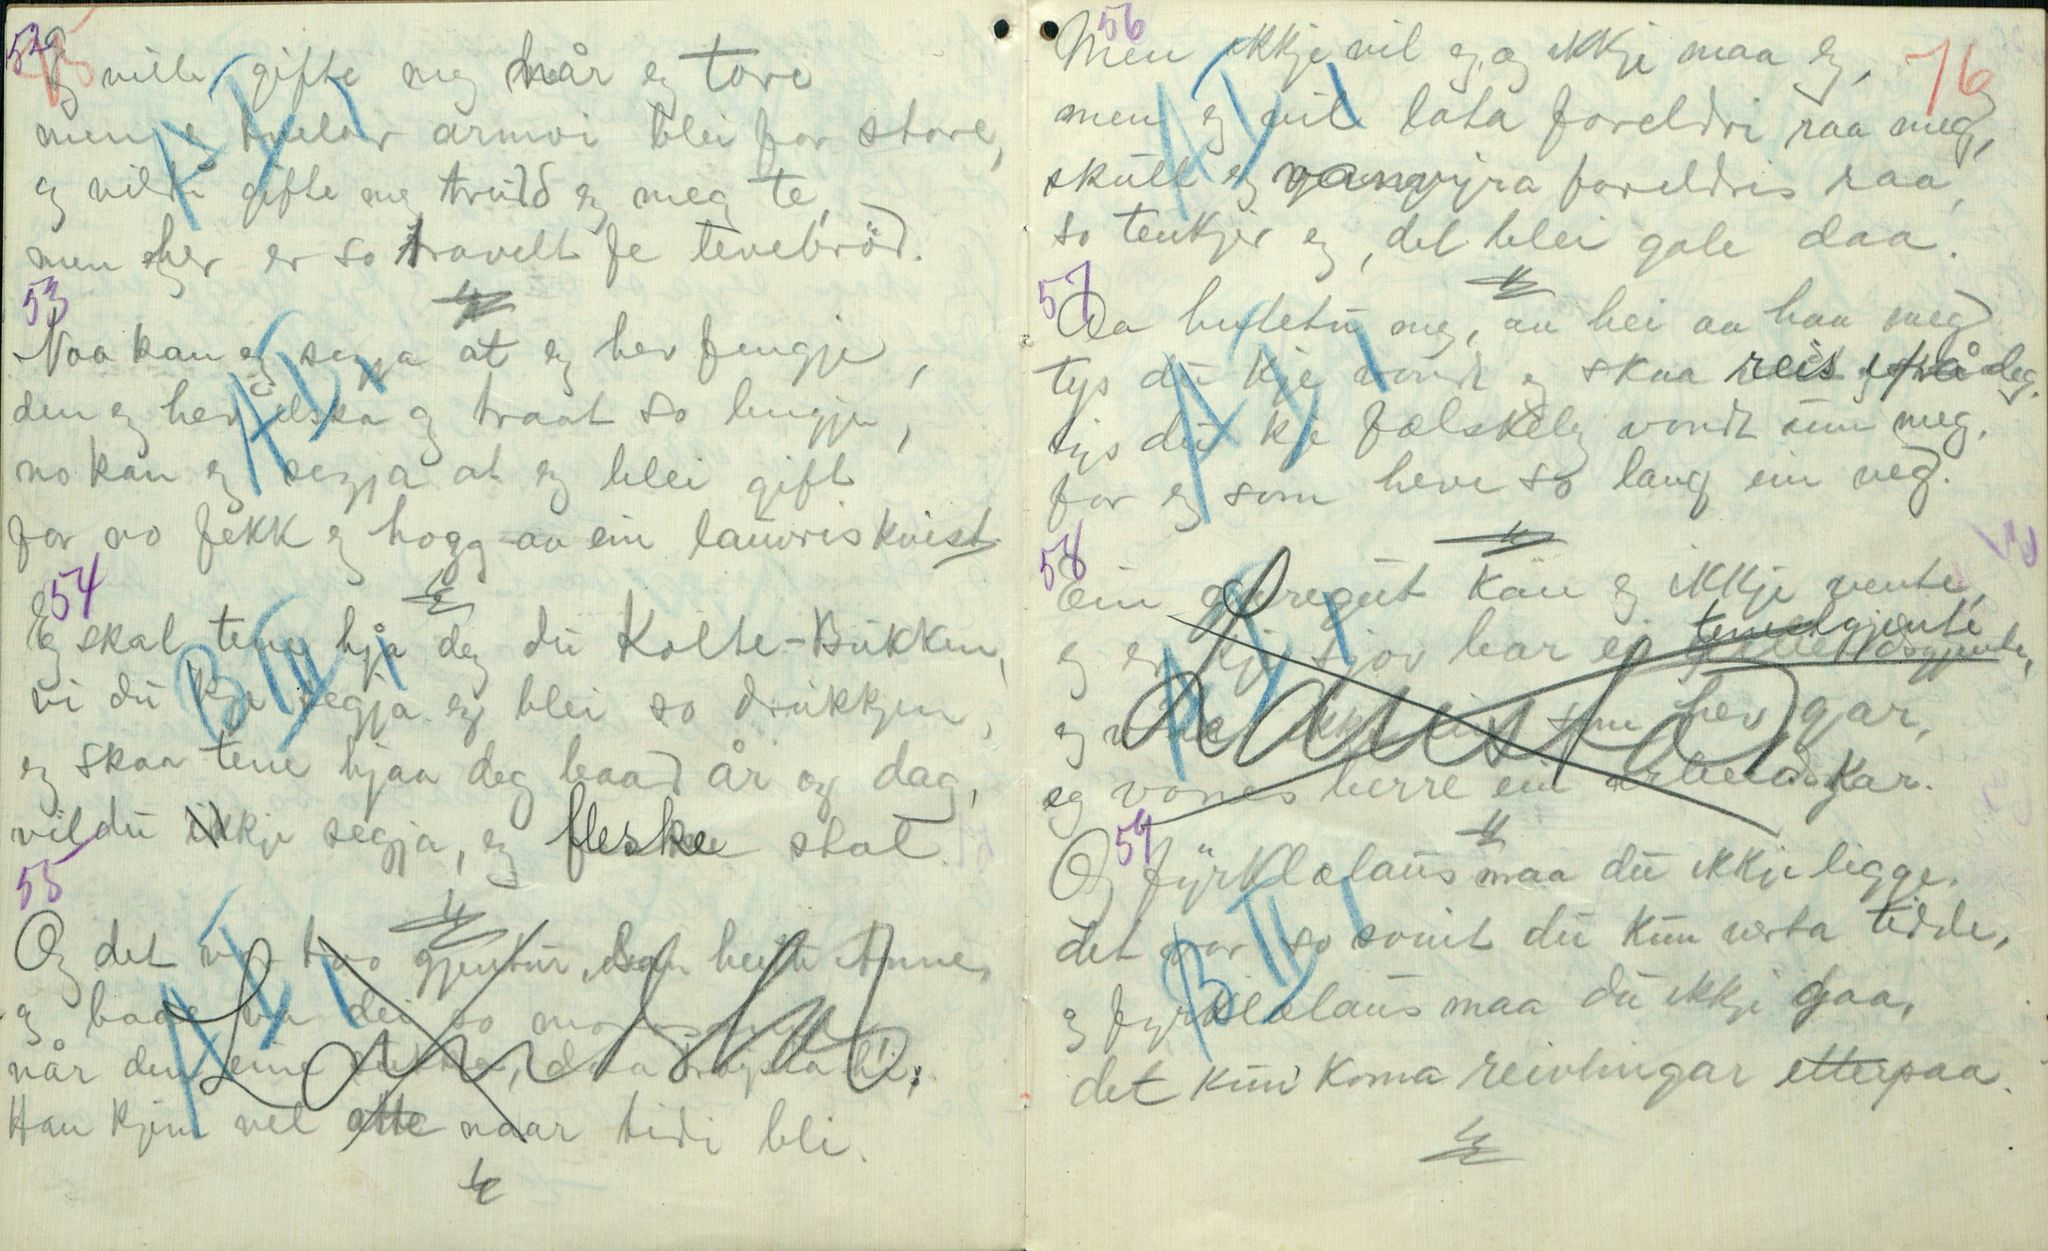 52 75
Eg ville gifte meg når eg tore
men eg armoi blei for store,
eg vilde gifte meg trudd eg meg te,
men her er so travelt fe tevebröd.
53
Naa kan eg segja at eg hev fengje,
den eg hev elska og traat so lengje,
no kan eg segja at eg blei gift
for no fekk eg hogg av ein lauvriskvist.
54
Eg skal tene hjå deg du Kolte-Bukken,
vi du kje segja eg blei so drukkjen,
eg skaa tene hjaa deg baad år og dag,
vil du ikkje segja, eg fleske stal.
55
Og det va too gjentur, heite Anne,
og baae va dei so
når den eine daa
Han kjem vel atte naar tidi bli.
56 76
Men ikkje vil eg, og ikkje maa eg,
men eg vil lata foreldri raa meg,
skull eg vanvyra foreldris raa,
so tenkjer eg, det blei gale daa.
57
Aa hutetu meg, au hei au haa meg
tys du kje vondt eg skaa reis ifrå deg.
tys du kje fælskele vondt um meg,
for eg som heve so lang ein veg.
58
Ein garegut kan eg ikkje vente,
eg er kje sjøv bar ei tenestgjente
eg som hev gar,
eg vones berre ein arbeidskar.
59
Og fyrklælaus maa du ikkje ligge,
det var so somt du kun verta tidde,
og fyrklælaus maa du ikkje gaa,
det kun koma reivlingar etterpaa.